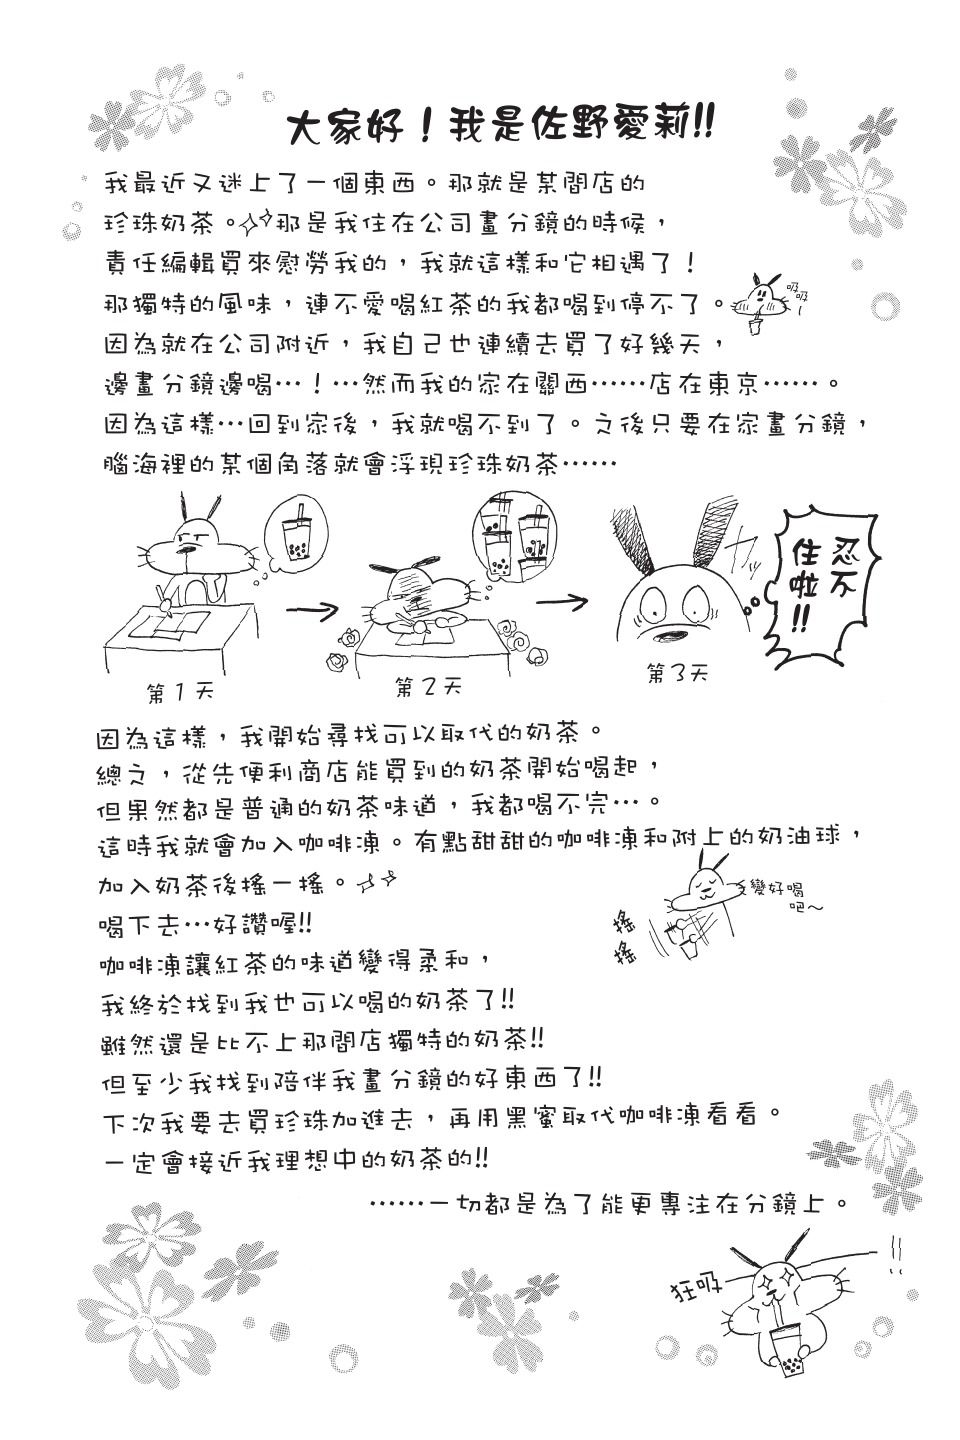 大家好！我是佐野愛莉!!
我最近又迷上了一個東西。那就是某間店的
珍珠奶茶。那是我住在公司畫分鏡的時候，
責任編輯買來慰勞我的，我就這樣和它相遇了！
那獨特的風味，連不愛喝紅茶的我都喝到停不了。
吸吸
因為就在公司附近，我自己也連續去買了好幾天，
邊畫分鏡邊喝…！…然而我的家在關西……店在東京……。
因為這樣…回到家後，我就喝不到了。之後只要在家畫分鏡，
腦海裡的某個角落就會浮現珍珠奶茶……
第1天
第2天
第3天
忍不
住啦!!
因為這樣，我開始尋找可以取代的奶茶。
總之，從先便利商店能買到的奶茶開始喝起，
但果然都是普通的奶茶味道，我都喝不完…。
這時我就會加入咖啡凍。有點甜甜的咖啡凍和附上的奶油球，
加入奶茶後搖一搖。
變好喝
吧～
搖
搖
喝下去…好讚喔!!
咖啡凍讓紅茶的味道變得柔和，
我終於找到我也可以喝的奶茶了!!
雖然還是比不上那間店獨特的奶茶!!
但至少我找到陪伴我畫分鏡的好東西了!!
下次我要去買珍珠加進去，再用黑蜜取代咖啡凍看看。
一定會接近我理想中的奶茶的!!
……一切都是為了能更專注在分鏡上。
狂吸
!!